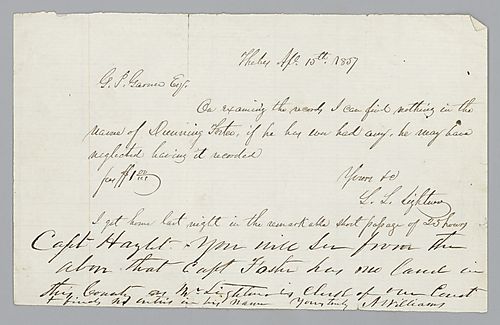 Thebes Ap. 15th. 1857
G. P. Garner Esq.
On examing the records I can find nothing in the
name of Dunning Foster, if he has ever had any, he may have
neglected having it recorded
fee $1.00
Yours &c
L. L. Lightner
I got home last night in the remarkable short passage of 23 hours
Capt Hazlet - You will See from the
above that Capt Foster has no land in
this County as Mr Lightner is clerk of our Court
& finds no entries in his name Yours truly A Williams